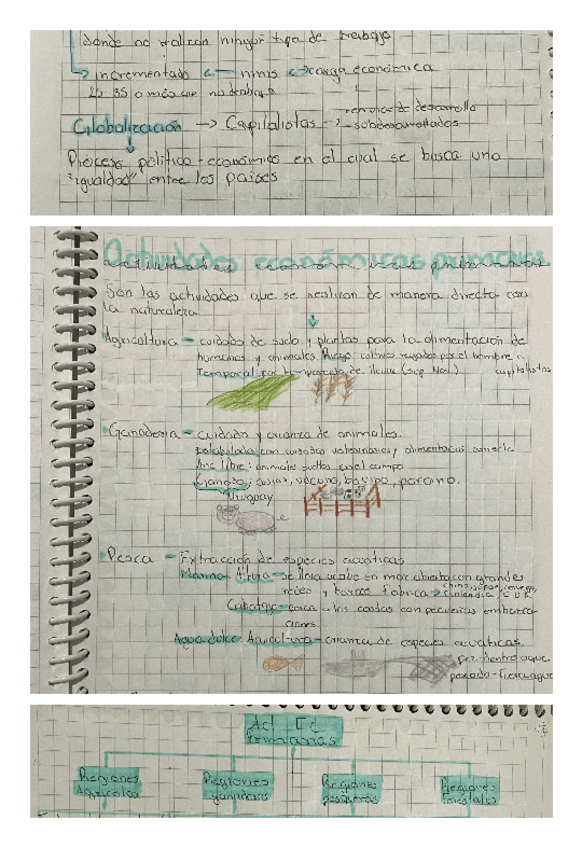 donde no realizan ningun tipo de trabajo
incrementado ← ninis → carga económica
25 35 o más que no trabaja
Globalización → Capitalistas → desarrollo
subdesarrollados
Proceso político-económico en el cual se busca una
"igualdad" entre los países
Actividades económicas primarias
Son las actividades que se realizan de manera directa con
la naturaleza
Agricultura - cuidado de suelo y plantas para la alimentación de
humanos y animales. Riego: cultivos regados por el hombre
Temporal: por temporada de lluvia
Ganadería - cuidado y crianza de animales.
Estabulada: con cuidados veterinarios y alimentación
Aire libre: animales sueltos en el campo
Ganado: ovino, vacuno, bovino, porcino.
Uruguay
Pesca - Extracción de especies acuáticas
Marina - Altura - se lleva acabo en mar abierto con grandes
redes y barcos fabrica → china, japon, noruega
finlandia, E.U.R.
Cabotaje - cerca a las costas con pequeñas embarca-
ciones.
Agua dulce: Acuicultura - crianza de especies acuáticas.
pez-dentro agua
pescado-fuera agua
Act Ec
Primarias
Regiones Agricolas
Regiones ganaderas
Regiones pesqueras
Regiones forestales